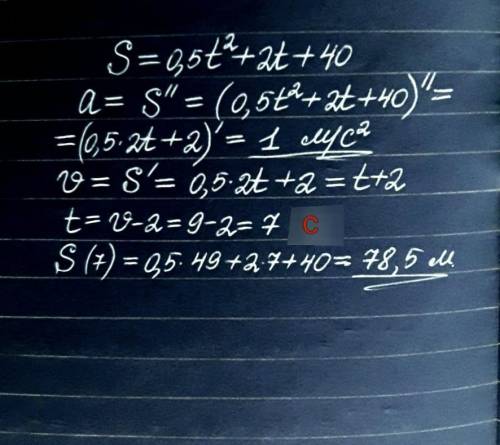 S = 0,5t² + 2t + 40
a = S'' = (0,5t² + 2t + 40)'' =
= (0,5·2t + 2)' = 1 м/с²
v = S' = 0,5·2t + 2 = t + 2
t = v - 2 = 9 - 2 = 7 с
S(7) = 0,5·49 + 2·7 + 40 = 78,5 м.